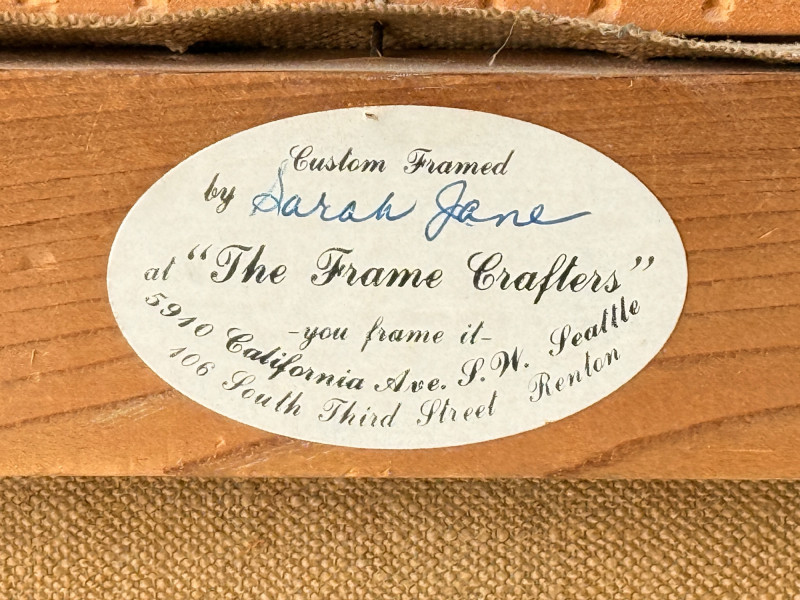 Custom Framed
by Sarah Jane
at "The Frame Crafters"
-you frame it-
5910 California Ave. S.W. Seattle
106 South Third Street Renton